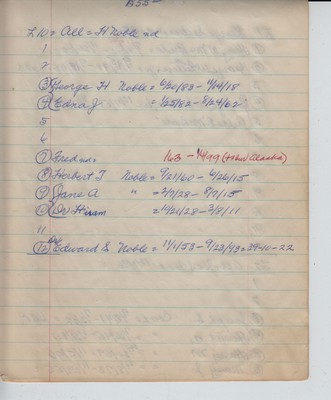 B55
L10 = All = H Noble = d
1
2
3 George H Noble = 6/20/83 - 11/14/18
4 Edna J. = 1/25/82 - 8/24/62
5
6
7 Fred 163 - 14/99 (Alaska)
8 Herbert T Noble = 9/21/60 - 4/26/15
9 Jane A " = 2/9/28 - 8/7/15
10 Dr Hiram = 10/21/28 - 3/8/11
11
12 Edward S Noble = 11/1/53 - 9/23/93 = 39-10-22